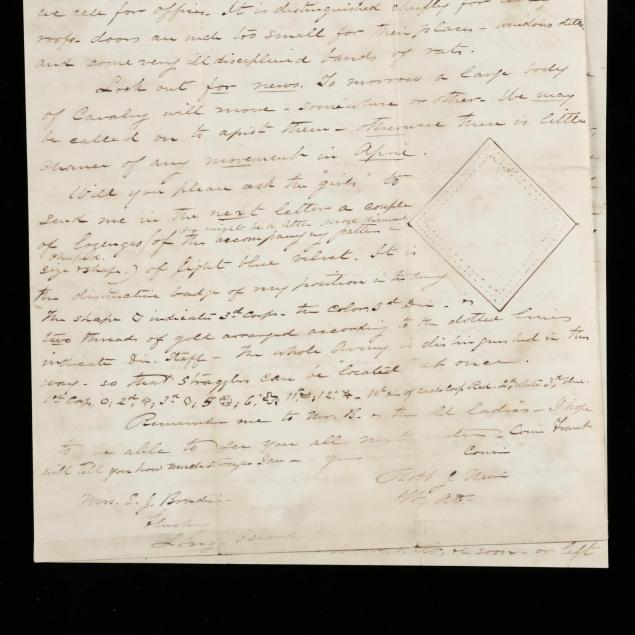 we use for offices. It is distinguished chiefly for
roofs. doors an inch too small for their places – windows ditto
and some very ill disciplined bands of rats.
Look out for news. To morrow a large body
of Cavalry will move – somewhere or other. We may
be called on to assist them – otherwise there is little
chance of any movement in April.
Will you please ask the "girls" to
send me in the next letter a couple
(or might be a little more diamond
shaped.
of lozenges (of the accompanying pattern –
size & shape.) of light blue velvet. It is
the distinctive badge of my position in the army
The shape ◇ indicates 3d Corps – the color 3d Div. –
two threads of gold arranged according to the dotted lines
indicate Div. Staff – The whole Army is distinguished in this
way – so that stragglers can be located at once.
1st Corps, 2d, 3d ◇, 5, 6, 11, 12 – 1st Div of each Corp Red. 2d white 3d blue.
Remember me to Mrs. B. & the old ladies – I hope
to be able to see you all next winter – Cousin Frank
will tell you how much stronger I am –
Cousin
Robt
Mrs. E. J.
Flushing
Long Island
soon – or left